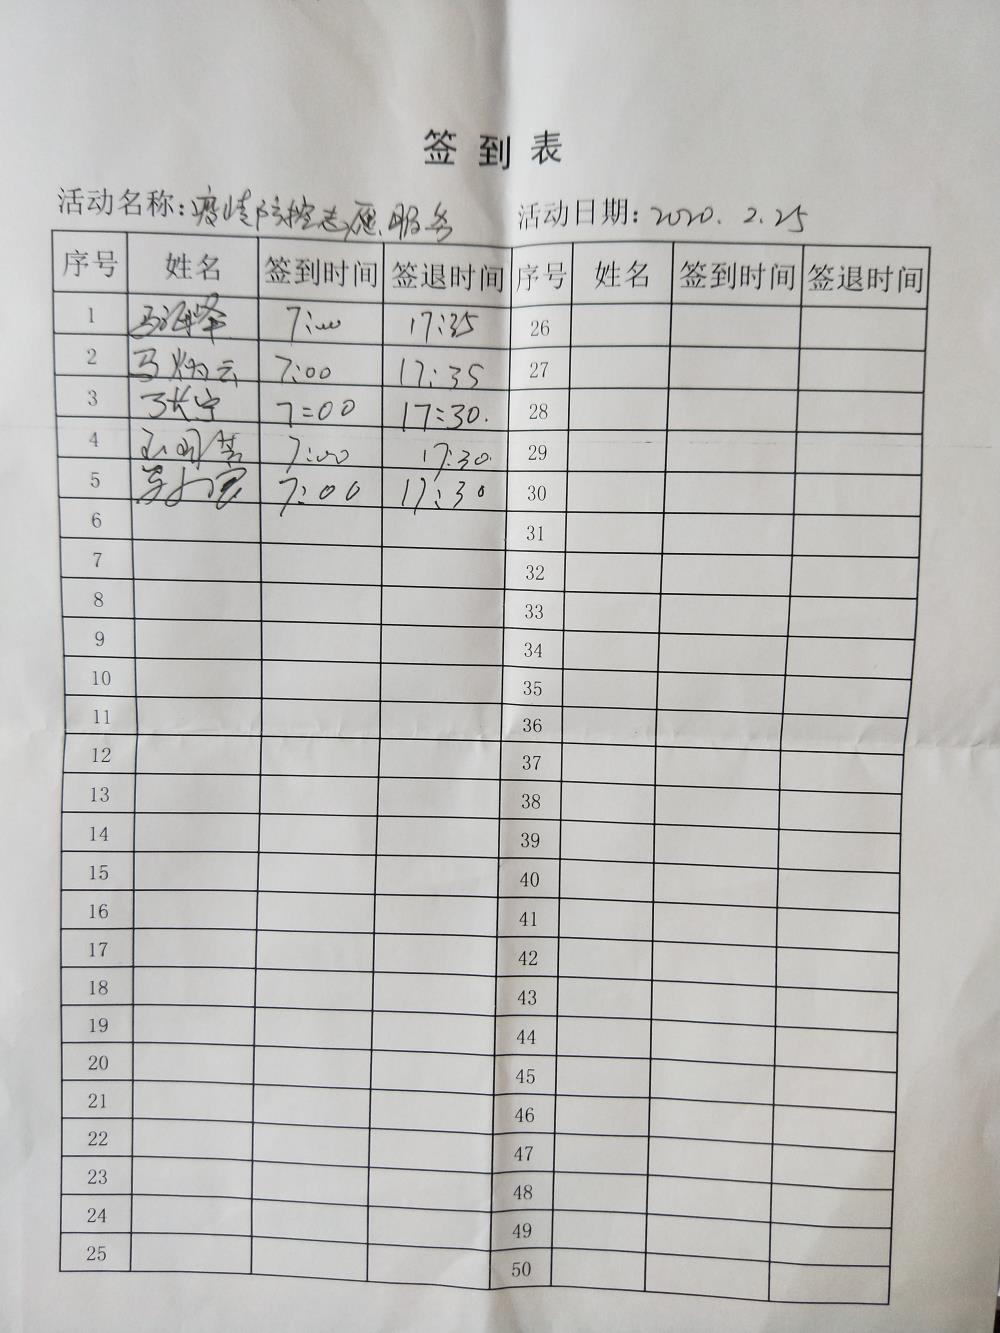 签到表
活动名称:疫情防控志愿服务 活动日期:2020.2.25
序号 姓名 签到时间 签退时间 序号 姓名 签到时间 签退时间
1 7:00 17:35 26
2 马炳云 7:00 17:35 27
3 张宁 7:00 17:30. 28
4 7:00 17:30. 29
5 7:00 17:30 30
6 31
7 32
8 33
9 34
10 35
11 36
12 37
13 38
14 39
15 40
16 41
17 42
18 43
19 44
20 45
21 46
22 47
23 48
24 49
25 50